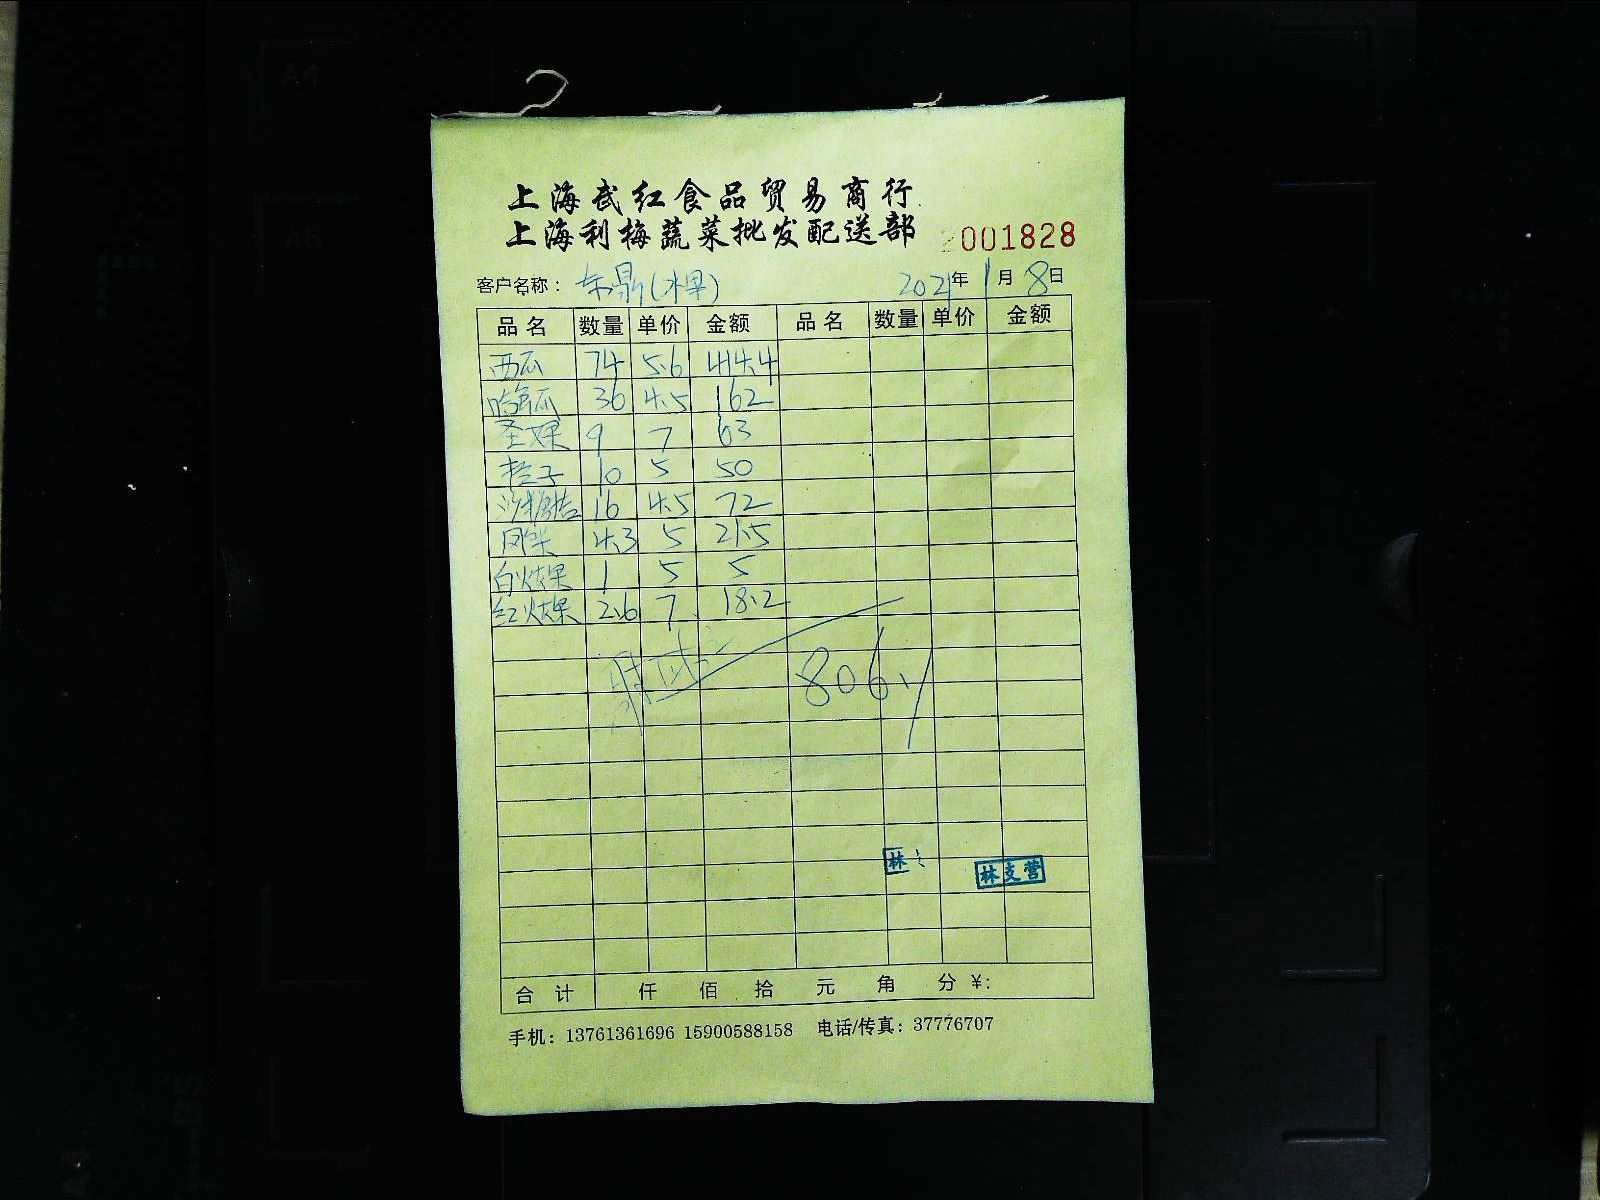 上海武红食品贸易商行
上海利梅蔬菜批发配送部 2001828
客户名称：东鼎(水果) 2021年1月8日
品名 数量 单价 金额 品名 数量 单价 金额
西瓜 74 5.6 414.4
哈密瓜 36 4.5 162
圣女果 9 7 63
桔子 10 5 50
沙糖桔 16 4.5 72
4.3 5 21.5
白火龙果 1 5 5
红火龙果 2.6 7 18.2
806.1
林 林支营
合计 仟 佰 拾 元 角 分 ¥:
手机：13761361696 15900588158 电话/传真：37776707
A4
A5